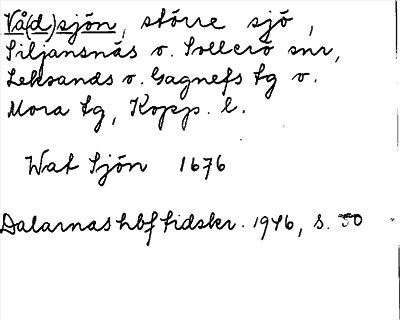 Vå(d)sjön, större sjö,
Siljansnäs o. Sollerö snr,
Leksands o. Gagnefs tg o.
Mora tg, Kopp. l.
Wat Sjön 1676
Dalarnas hbf tidskr. 1946, s. 50